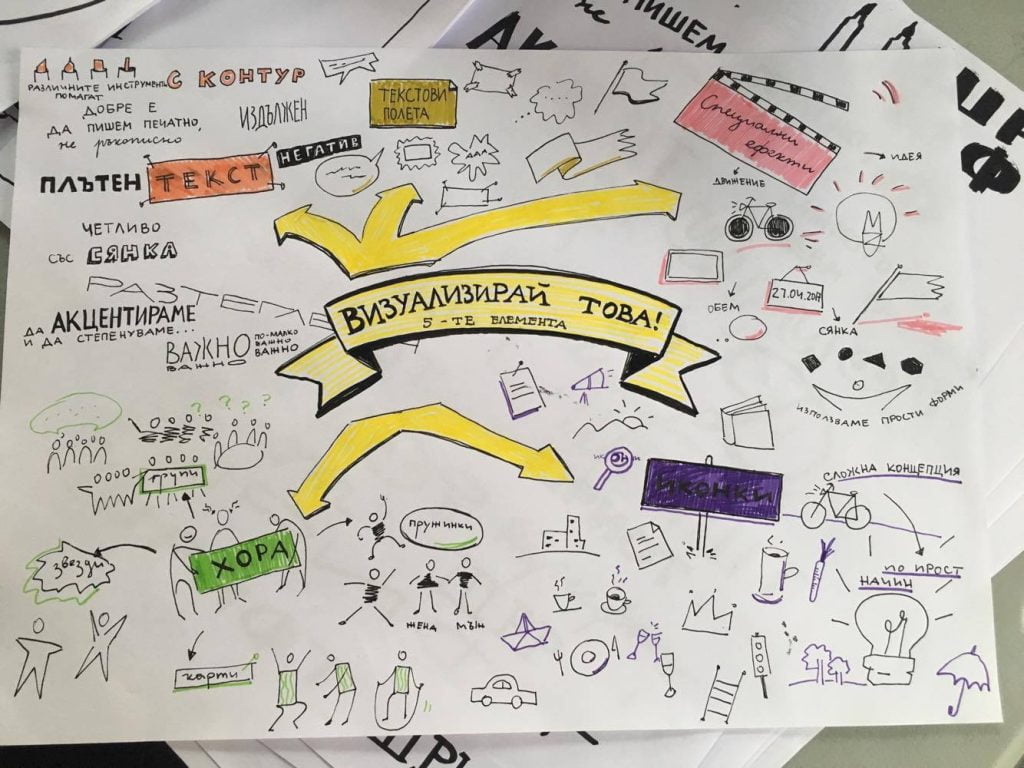 РАЗЛИЧНИТЕ ИНСТРУМЕНТИ
ПОМАГАТ
С КОНТУР
ДОБРЕ Е
ДА ПИШЕМ ПЕЧАТНО,
не ръкописно
ИЗДЪЛЖЕН
ПЛЪТЕН
ТЕКСТ
НЕГАТИВ
ЧЕТЛИВО
със СЯНКА
ДА АКЦЕНТИРАМЕ
И ДА СТЕПЕНУВАМЕ...
ВАЖНО
ВАЖНО
ПО-МАЛКО
ВАЖНО
ВАЖНО
ТЕКСТОВИ
ПОЛЕТА
Специални
ефекти
ДВИЖЕНИЕ
ИДЕЯ
ОБЕМ
27.04.2017
СЯНКА
ИЗПОЛЗВАМЕ ПРОСТИ ФОРМИ
ВИЗУАЛИЗИРАЙ ТОВА!
5-ТЕ ЕЛЕМЕНТА
групи
ХОРА
звезди
карти
пружинки
ЖЕНА
МЪЖ
ИКОНКИ
СЛОЖНА КОНЦЕПЦИЯ
ПО ПРОСТ
НАЧИН
ПИШЕМ
не